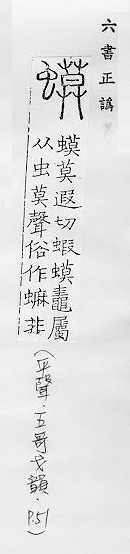 六書正譌
蟆
蟆莫遐切蝦蟆鼃屬
从虫莫聲俗作蟇非
(平聲·五哥戈韻·P.51)